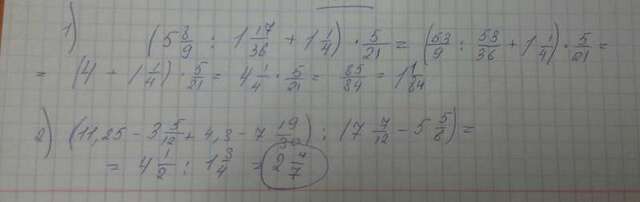 1) (5 8/9 : 1 17/36 + 1 1/4) · 5/21 = (53/9 : 53/36 + 1 1/4) · 5/21 =
= (4 + 1 1/4) · 5/21 = 4 1/4 · 5/21 = 85/84 = 1 1/84
2) (11,25 - 3 5/12 + 4,3 - 7 19/30) : (7 7/12 - 5 5/6) =
= 4 1/2 : 1 3/4 = 2 4/7